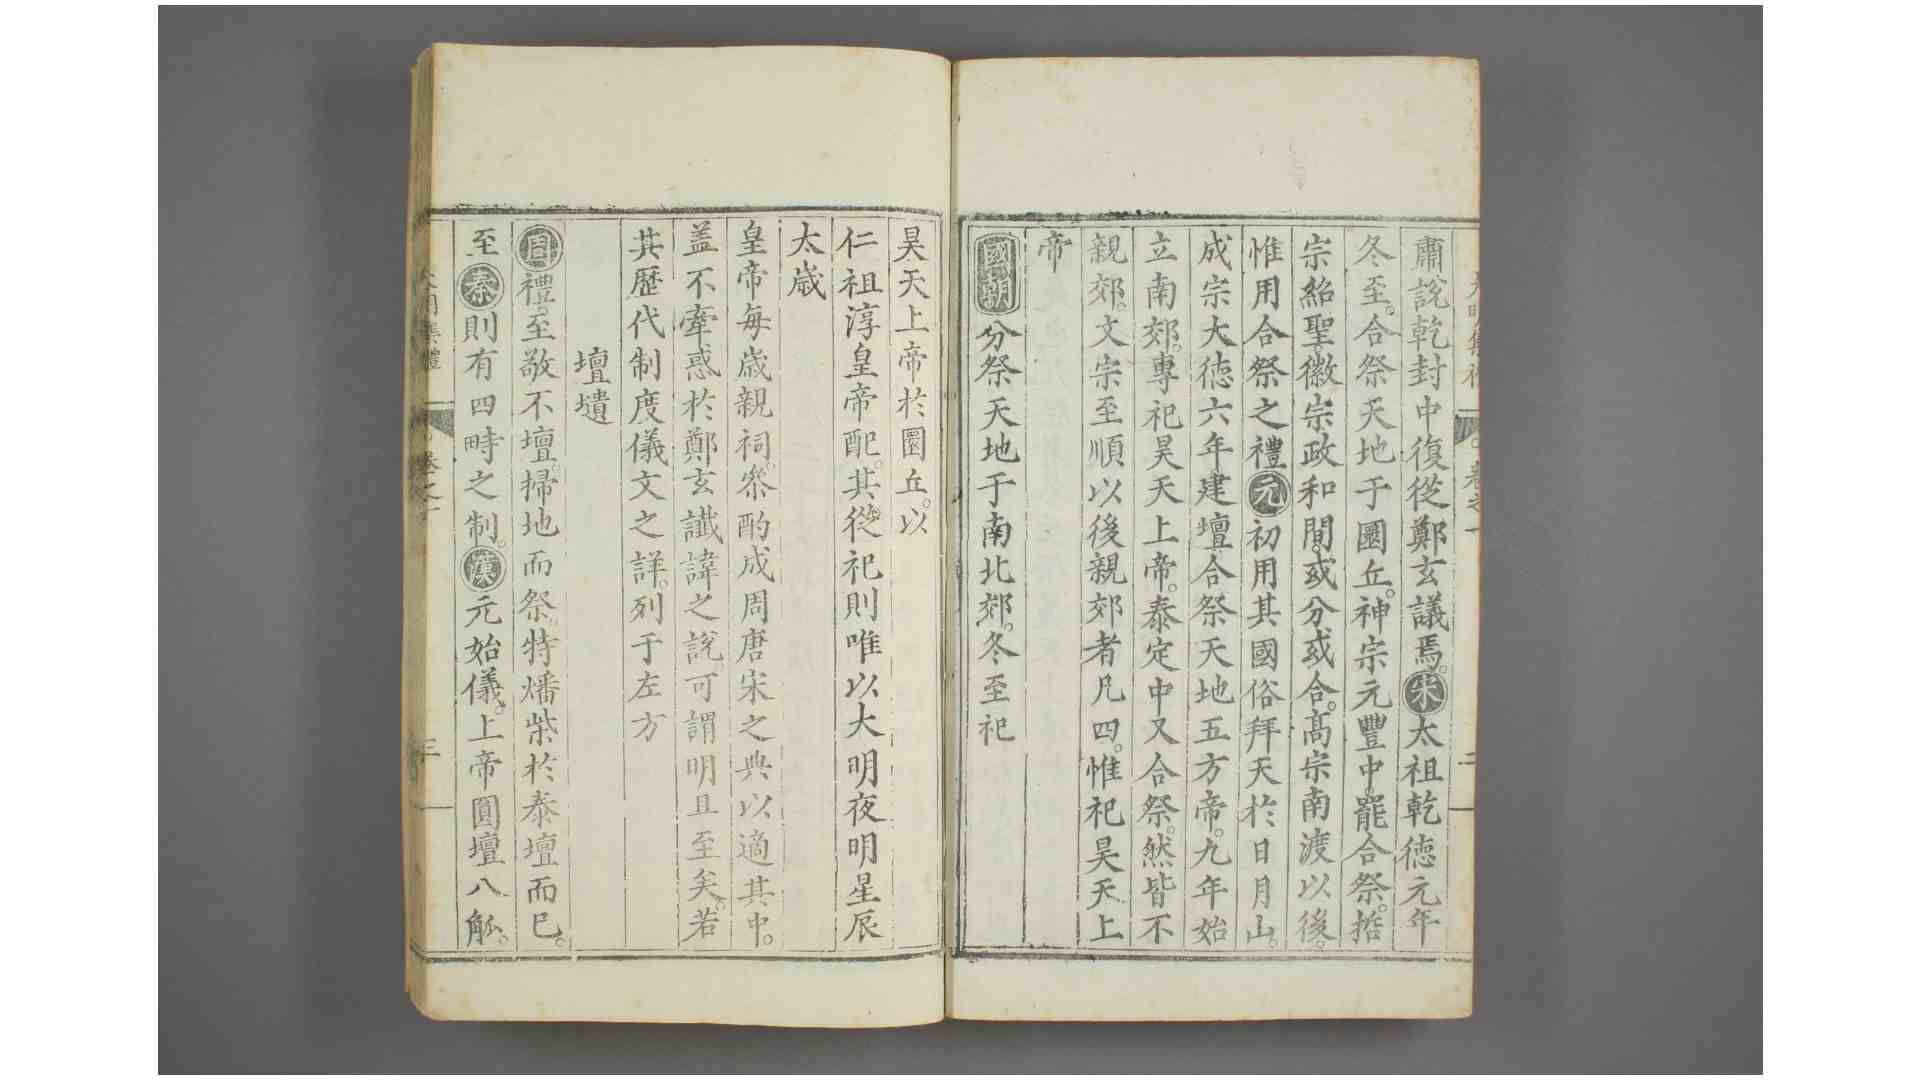 肅說乾封中復從鄭玄議焉。宋太祖乾德元年
冬至。合祭天地于圜丘。神宗元豐中。罷合祭。哲
宗紹聖徽宗政和間。或分或合。高宗南渡以後。
惟用合祭之禮元初用其國俗拜天於日月山。
成宗大德六年建壇合祭天地五方帝。九年始
立南郊。專祀昊天上帝。泰定中又合祭。然皆不
親郊。文宗至順以後親郊者凡四。惟祀昊天上
帝
國朝分祭天地于南北郊。冬至祀
昊天上帝於圜丘。以
仁祖淳皇帝配。其從祀則唯以大明夜明星辰
太歲
皇帝每歲親祠。叅酌成周唐宋之典以適其中。
盖不牽惑於鄭玄讖諱之說。可謂明且至矣。若
其歷代制度儀文之詳。列于左方
壇壝
周禮。至敬不壇。掃地而祭特燔柴於泰壇而已。
至秦則有四畤之制。漢元始儀。上帝圓壇八觚。
大明集禮 卷之一 三